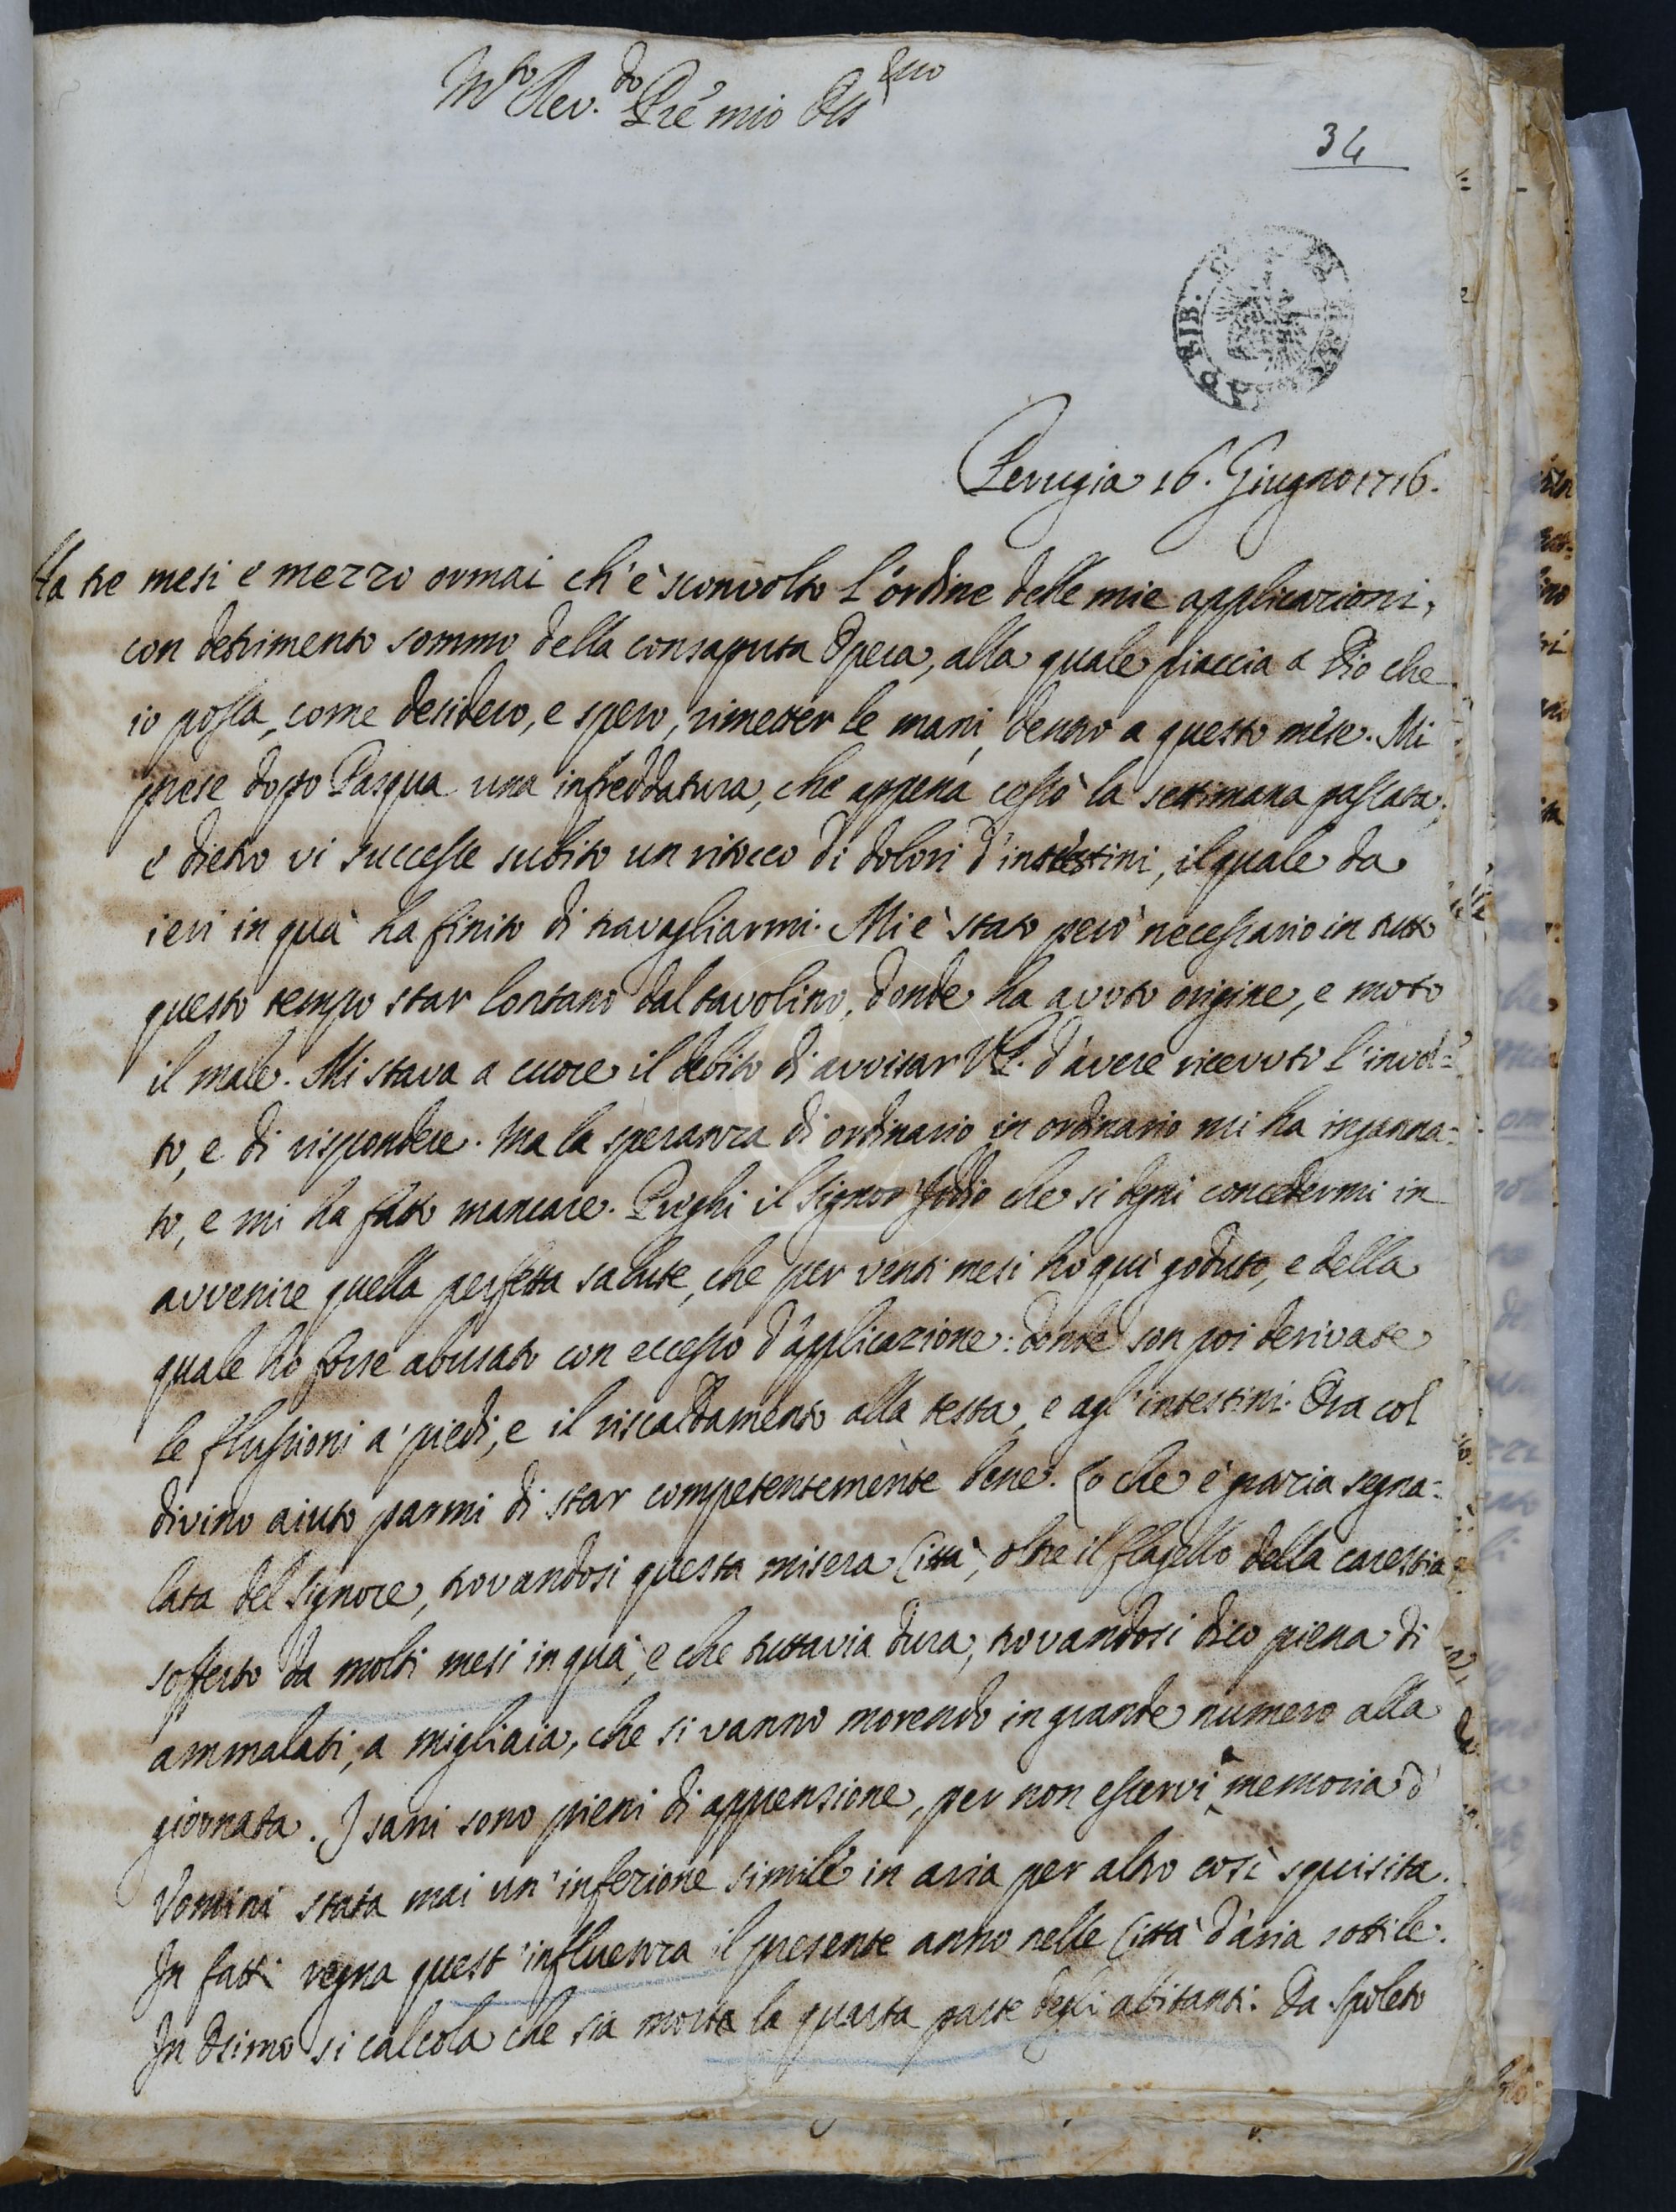 M.to Rev.do Prē mio Oss.mo
34
LIB.
Perugia 16. Giugno 1716.
Ha tre mesi e mezzo ormai ch'è sconvolto l'ordine delle mie applicazioni,
con detrimento sommo della consaputa Opera, alla quale piaccia a Dio che
io possa, come desidero, e spero, rimetter le mani, dentro a questo mese. Mi
prese dopo Pasqua una infreddatura, che appena cessò la settimana passata;
e dietro vi successe subito un ritocco di dolori d'intestini, il quale da
ieri in quà ha finito di travagliarmi. Mi è stato però necessario in tutto
questo tempo star lontano dal tavolino, donde ha avuto origine, e moto
il male. Mi stava a cuore il debito di avvisar VR. d'avere ricevuto l'invol=
to, e di rispondere. Ma la speranza di ordinario in ordinario mi ha inganna=
to, e mi ha fatto mancare. Prieghi il Signor Iddio che si degni concedermi in
avvenire quella perfetta salute, che per venti mesi ho quì goduto, e della
quale hò forse abusato con eccesso d'applicazione: donde son poi derivate
le flussioni a' piedi, e il riscaldamento alla testa, e agl'intestini. Ora col
divino aiuto parmi di star competentemente bene. Lo che è grazia segna=
lata del Signore, trovandosi questa misera Città, oltre il flagello della carestia
sofferto da molti mesi in quà, e che tuttavia dura, trovandosi dico piena di
ammalati, a migliaia, che si vanno morendo in grande numero alla
giornata. I sani sono pieni di apprensione, per non esservi a memoria d'
Vomini stata mai un'infezione simile in aria per altro così squisita.
In fatti regna quest'influenza il presente anno nelle Città d'aria sottile.
In Osimo si calcola che sia morta la quarta parte degli abitanti. Da Spoleto